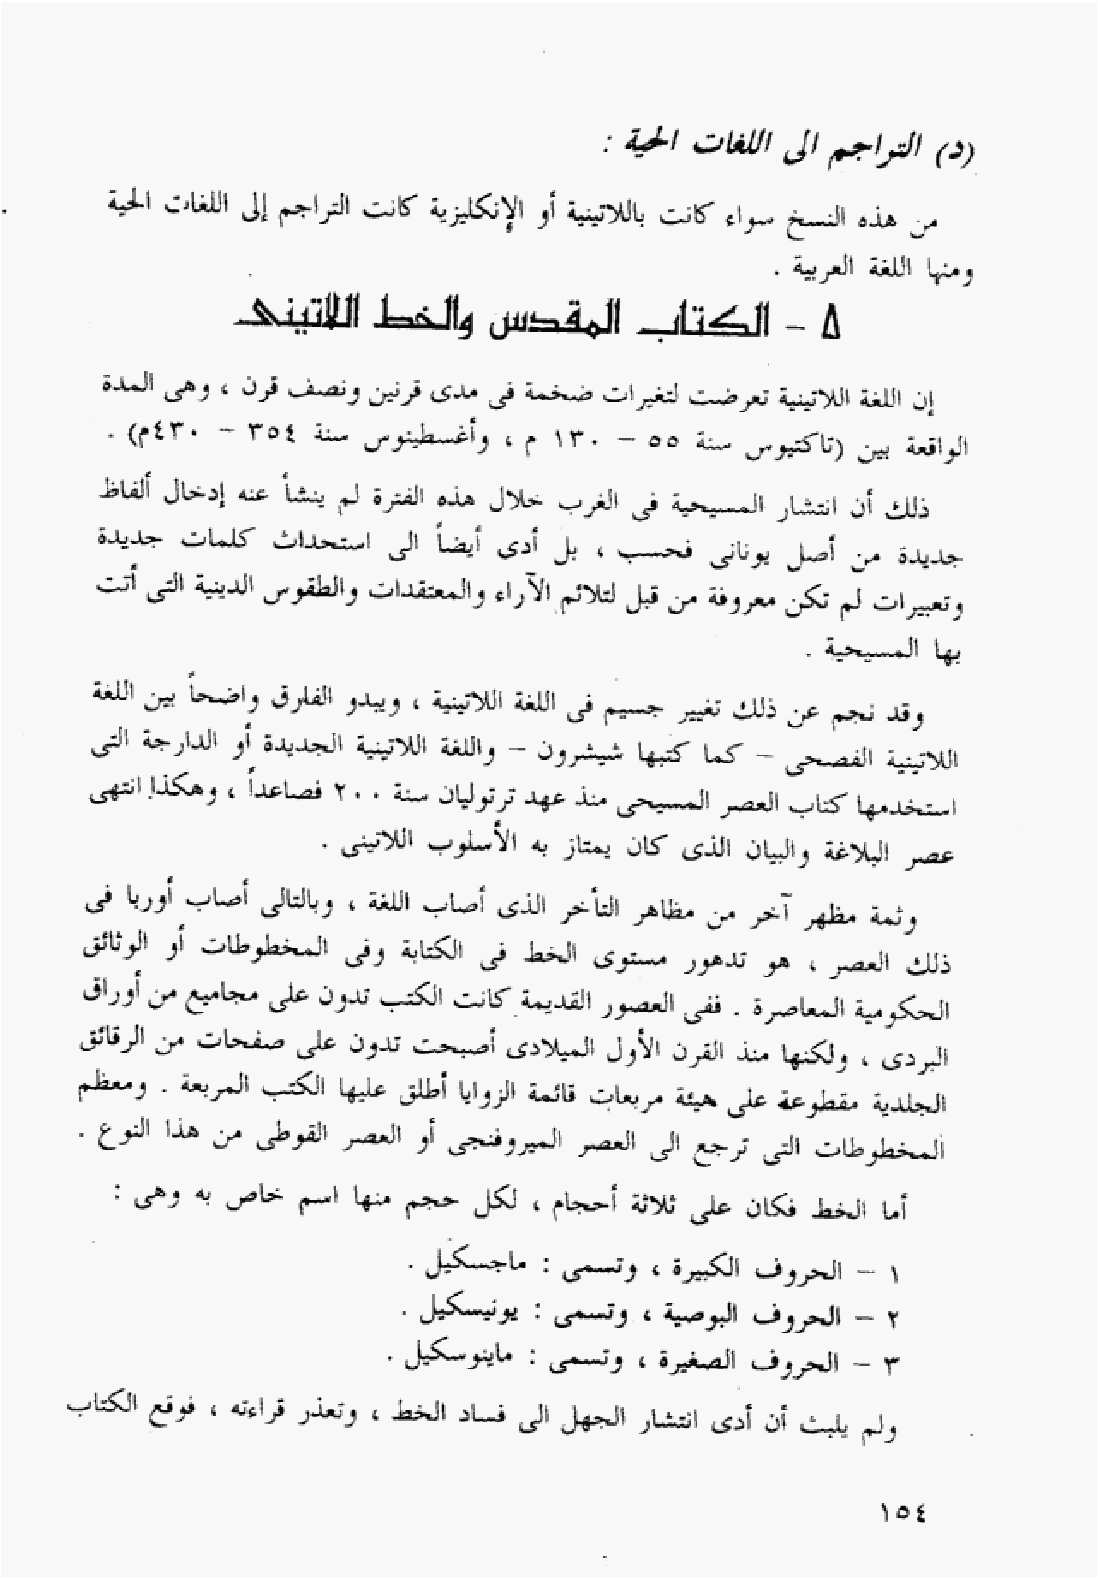 (د) التراجم الى اللغات الحية :
من هذه النسخ سواء كانت باللاتينية أو الإنكليزية كانت التراجم إلى اللغات الحية
ومنها اللغة العربية .
٥ - الكتاب المقدس والخط اللاتينى
إن اللغة اللاتينية تعرضت لتغيرات ضخمة فى مدى قرنين ونصف قرن ، وهى المدة
الواقعة بين (تاكتيوس سنة ٥٥ - ١٣٠ م ، وأغسطينوس سنة ٣٥٤ - ٤٣٠م) .
ذلك أن انتشار المسيحية فى الغرب خلال هذه الفترة لم ينشأ عنه إدخال ألفاظ
جديدة من أصل يونانى فحسب ، بل أدى أيضاً الى استحداث كلمات جديدة
وتعبيرات لم تكن معروفة من قبل لتلائم الآراء والمعتقدات والطقوس الدينية التى أتت
بها المسيحية .
وقد نجم عن ذلك تغيير جسيم فى اللغة اللاتينية ، ويبدو الفارق واضحاً بين اللغة
اللاتينية الفصحى - كما كتبها شيشرون - واللغة اللاتينية الجديدة أو الدارجة التى
استخدمها كتاب العصر المسيحى منذ عهد ترتوليان سنة ٢٠٠ فصاعداً ، وهكذا انتهى
عصر البلاغة والبيان الذى كان يمتاز به الأسلوب اللاتينى .
وثمة مظهر آخر من مظاهر التأخر الذى أصاب اللغة ، وبالتالى أصاب أوربا فى
ذلك العصر ، هو تدهور مستوى الخط فى الكتابة وفى المخطوطات أو الوثائق
الحكومية المعاصرة . ففى العصور القديمة كانت الكتب تدون على مجاميع من أوراق
البردى ، ولكنها منذ القرن الأول الميلادى أصبحت تدون على صفحات من الرقائق
الجلدية مقطوعة على هيئة مربعات قائمة الزوايا أطلق عليها الكتب المربعة . ومعظم
المخطوطات التى ترجع الى العصر الميروفنجى أو العصر القوطى من هذا النوع .
أما الخط فكان على ثلاثة أحجام ، لكل حجم منها اسم خاص به وهى :
١ - الحروف الكبيرة ، وتسمى : ماجسكيل .
٢ - الحروف البوصية ، وتسمى : يونيسكيل .
٣ - الحروف الصغيرة ، وتسمى : ماينوسكيل .
ولم يلبث أن أدى انتشار الجهل الى فساد الخط ، وتعذر قراءته ، فوقع الكتاب
١٥٤